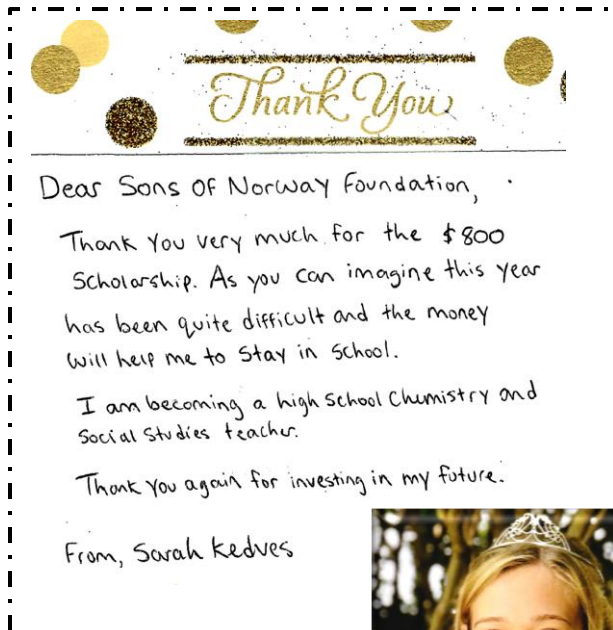 Thank You
Dear Sons Of Norway Foundation,
Thank You very much for the $800
Scholarship. As you can imagine this year
has been quite difficult and the money
will help me to Stay in School.
I am becoming a high School Chemistry and
Social Studies teacher.
Thank You again for investing in my future.
From, Sarah Kedves